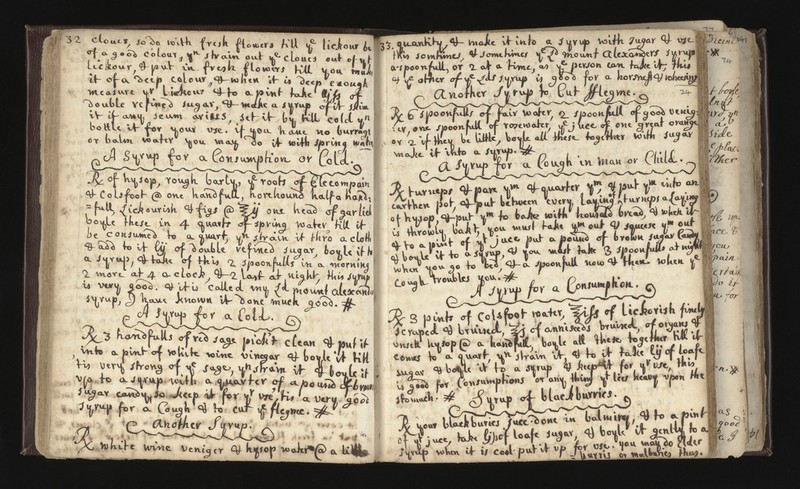 32
cloues, so do with fresh flowers till yᵉ lickour be
of a good colour, yⁿ strain out yᵉ cloues out of yᵉ
lickour, & put in fresh flowers till you make
it of a deep colour, & when it is deep enough
measure yʳ lickour & to a pint take of
double refined sugar, & make a syrup of it skim
it if any scum arises, set it by till cold yⁿ
bottle it for your use. if you have no burrage
or balm water you may do it with spring water
A Syrup for a Consumption or Cold.
℞ of hysop, rough barly, yᵉ roots of Elecompain
& Colsfoot @ one handfull, horehound half a hand:
=full, Lickourish & figs @ ℥ij one head of garlick
boyle these in 4 quarts of spring water till it
be consumed to a quart, yⁿ strain it thro a cloth
& add to it lij of double refined sugar, boyle it to
a syrup, & take of this 2 spoonfulls in a morning
2 more at 4 a clock, & 2 last at night, this syrup
is very good. & it is called my Lᵈ mount alexanders
syrup, I have known it done much good. #
A Syrup for a Cold.
℞ 3 handfulls of red sage pick't clean & put it
into a pint of white wine vinegar & boyle it till
'tis very strong of yᵉ sage, yⁿ strain it & boyle it
up to a syrup with a quarter of a pound of brown
sugar candy, so keep it for yʳ use, tis a very good
syrup for a Cough & to cut yᵉ flegme. #
Another Syrup.
℞ white wine veniger & hysop water @ a little
33.
quantity, & make it into a syrup with sugar & use
this somtimes, & sometimes yᵉ Lᵈ mount Alexanders syrup
a spoonfull, or 2 at a time, as yᵉ person can take it, this
& yᵉ other of yᵉ Lds syrup is good for a horsness & wheesing
Another Syrup to Cut fflegme.
24
℞ 6 spoonfulls of fair water, 2 spoonfull of good venig:
=er, one spoonfull of rosewater, yᵉ juce of one great orange
or 2 if they be little, boyle all these together with sugar
make it into a syrup. #
A syrup for a Cough in man or Child.
℞ turneps & pare yᵐ & quarter yᵐ & put yᵐ into an
earthen pot, & put between every, laying turneps a laying
of hysop, & put yᵐ to bake with houshold bread, & when it
is throwly bak't, you must take yᵐ out & squese yᵐ out
& to a pint of yᵗ juce put a pound of brown sugar Candy
& boyle it to a syrup, & you must take 3 spoonfulls at night
when you go to bed, & a spoonfull now & then when yᵉ
cough troubles you. #
A syrup for a Consumption.
℞ 3 pints of Colsfoot water, of Lickorish finely
scraped & bruised, of anniseeds bruised, of organs &
unsett hysop @ a handfull, boyle all these together till it
comes to a quart, yⁿ strain it, & to it take lij of loafe
sugar & boyle it to a syrup & keep it for yʳ use, this
is good for Consumptions or any thing yᵗ lies heavy upon the
stomach. #
Syrup of blackburries.
℞ your blackburies juce done in balmiry, & to a pint
of yᵉ juce, take of loafe sugar, & boyle it gently to a
syrup when it is cool put it up for use. you may do Elder
burris or mulburies thus.